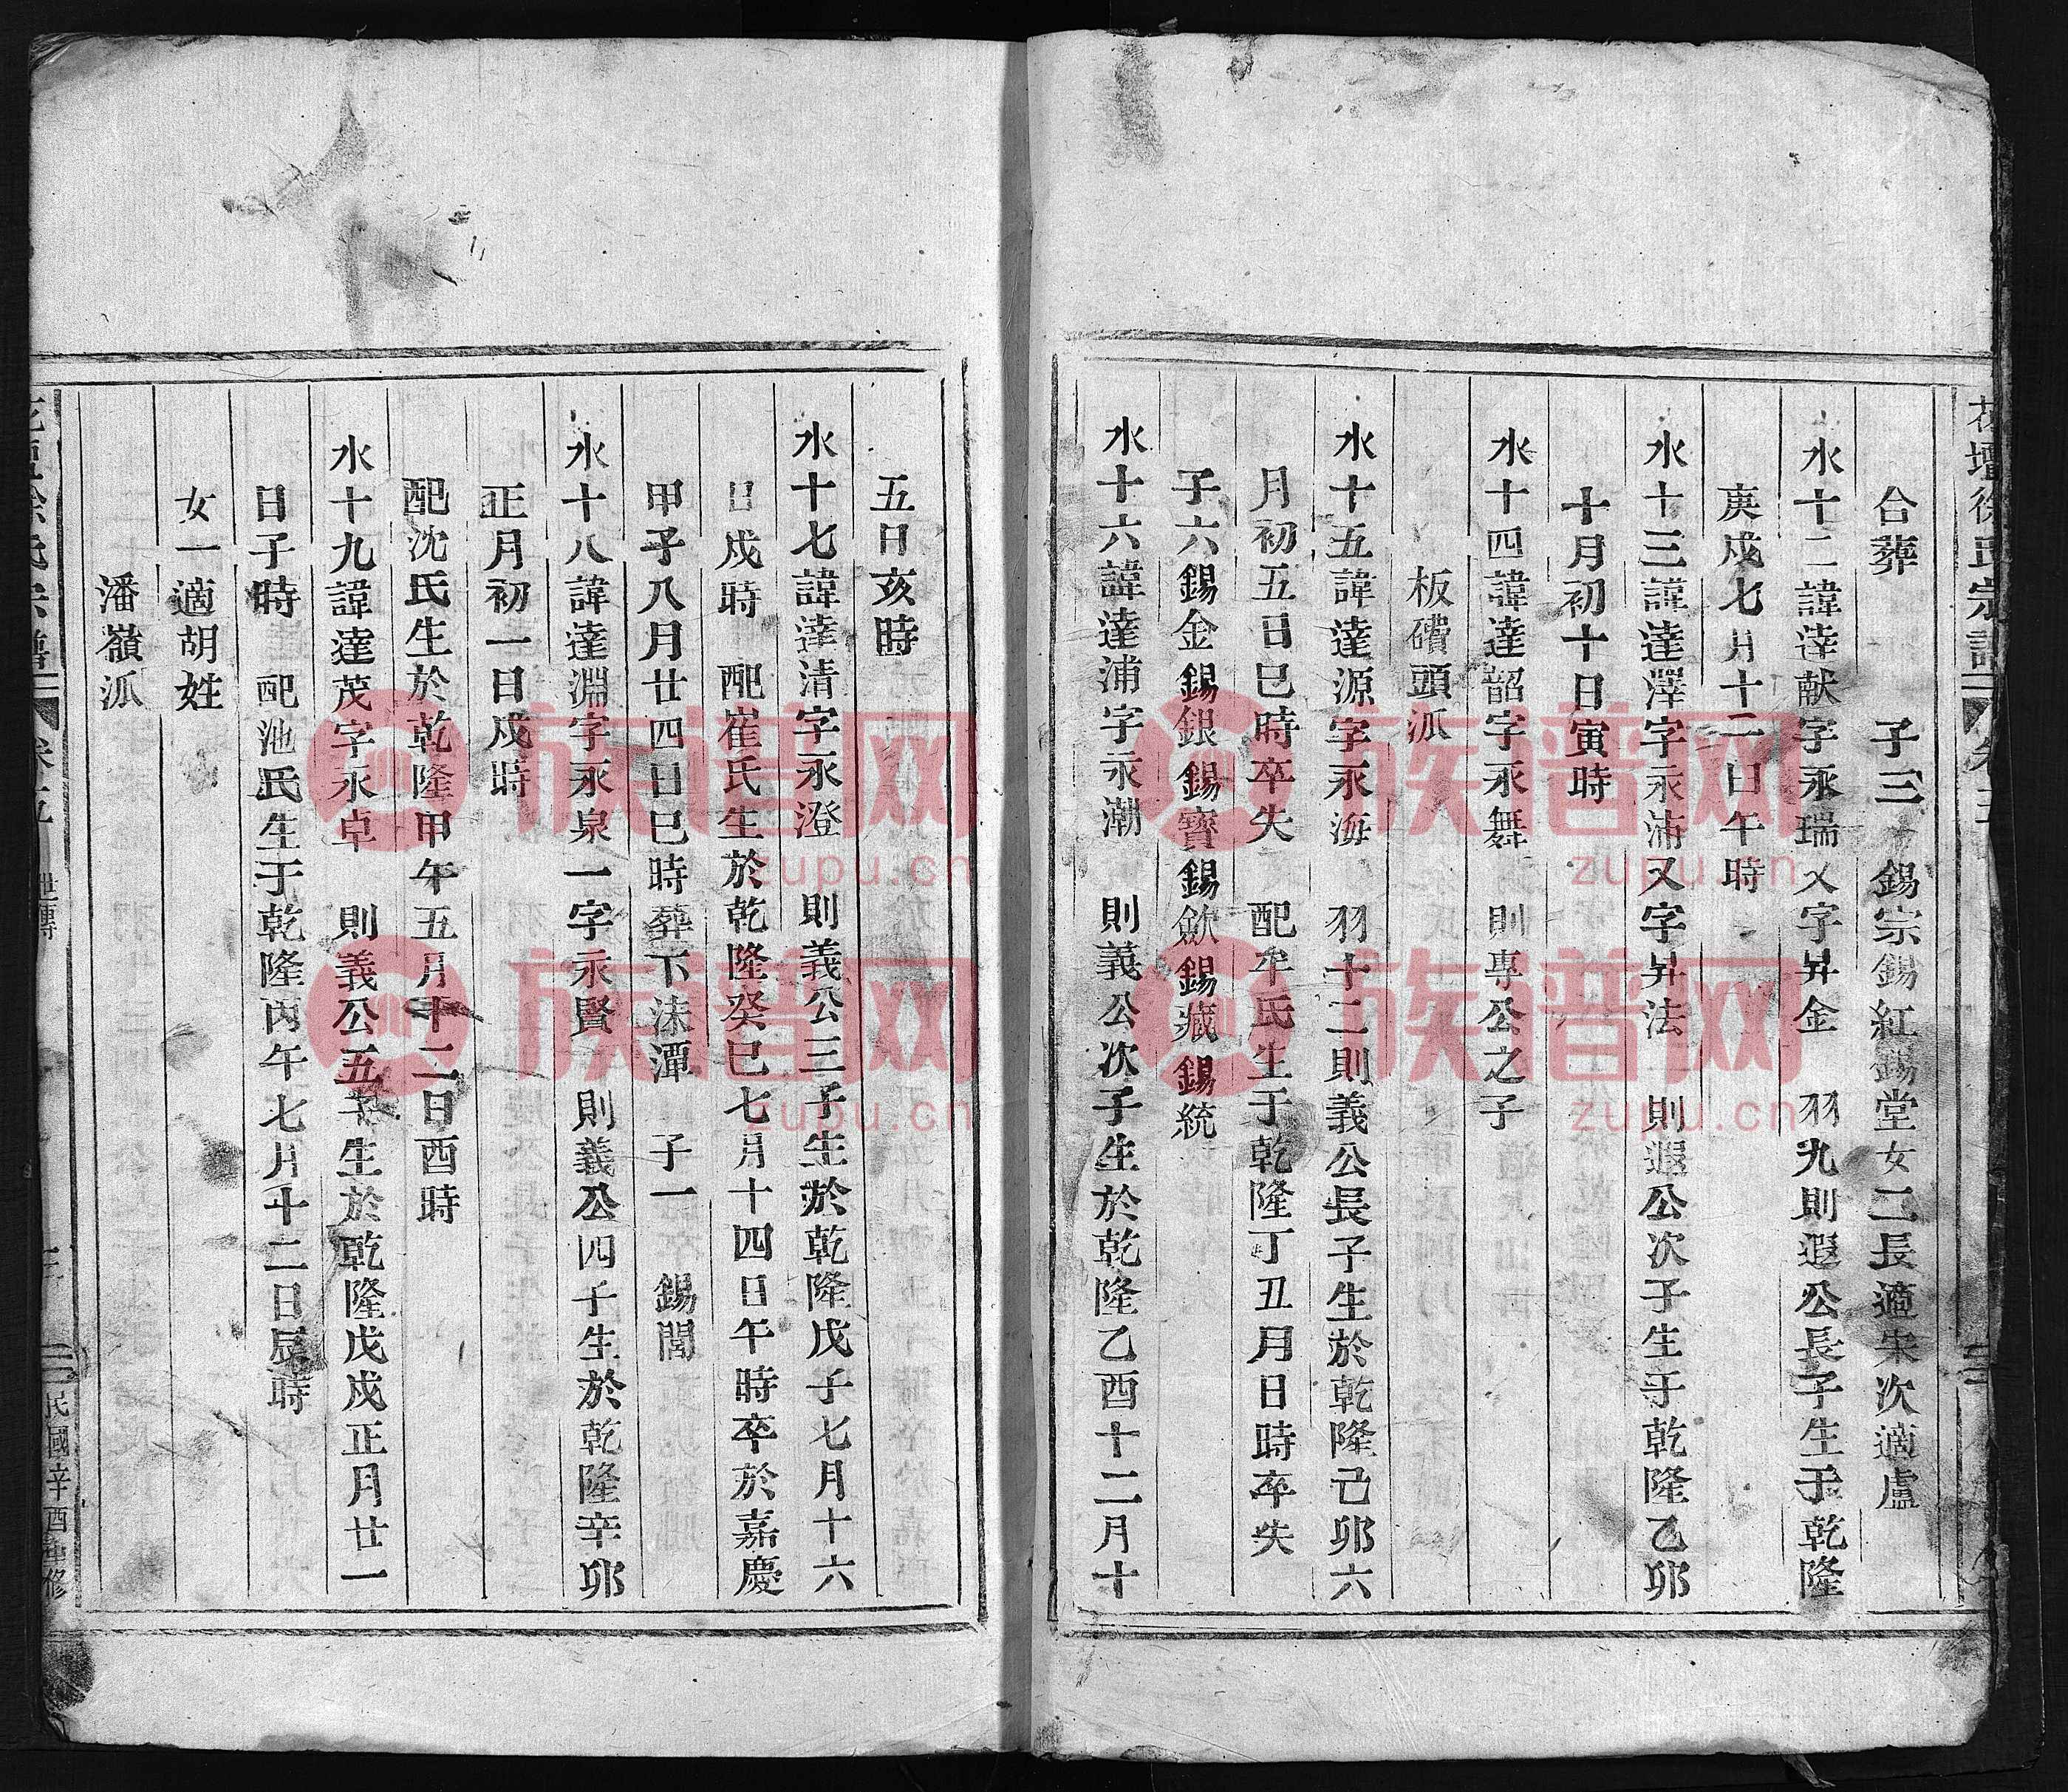 花壇徐氏宗譜
合葬　子三　錫宗錫紅錫堂女二長適朱次適盧
水十二諱達献字永瑞又字昇金　羽九則遐公長子生于乾隆
庚戍七月十二日午時
水十三諱達澤字永沛又字昇法　則遐公次子生于乾隆乙卯
十月初十日寅時
水十四諱達韶字永舞　則專公之子
板磧頭派
水十五諱達源字永海　羽十二則義公長子生於乾隆己卯六
月初五日巳時卒失　配牟氏生于乾隆丁丑月日時卒失
子六錫金錫銀錫寶錫歛錫藏錫統
水十六諱達浦字永潮　則義公次子生於乾隆乙酉十二月十
五日亥時
水十七諱達清字永澄　則義公三子生於乾隆戊子七月十六
日戍時　配崔氏生於乾隆癸巳七月十四日午時卒於嘉慶
甲子八月廿四日巳時葬下洡潭　子一　錫閭
水十八諱達淵字永泉一字永賢　則義公四子生於乾隆辛卯
正月初一日戍時
配沈氏生於乾隆甲午五月十二日酉時
水十九諱達茂字永卓　則義公五子生於乾隆戊戍正月廿一
日子時　配池氏生于乾隆丙午七月十二日辰時
女一適胡姓
潘嶺派
花壇徐氏宗譜　卷五　世傳　民國辛酉重修
族谱网
zupu.cn
族谱网
zupu.cn
族谱网
zupu.cn
族谱网
zupu.cn